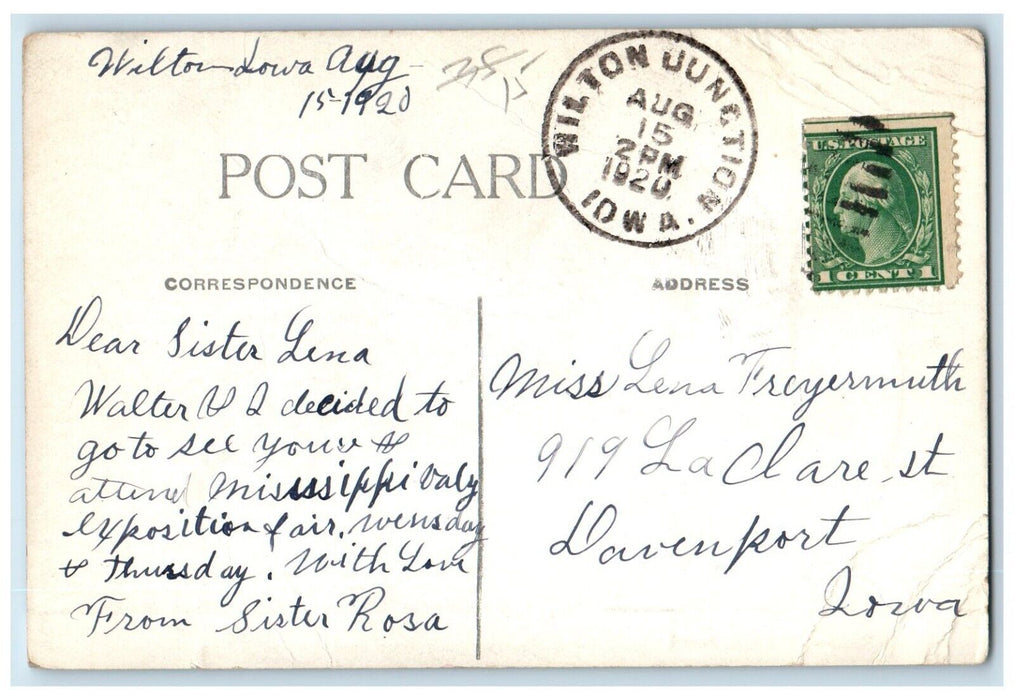 Wilton Iowa Aug
15-1920
WILTON JUNCTION
AUG
15
2 PM
1920
IOWA.
U.S. POSTAGE
1 CENT 1
POST CARD
CORRESPONDENCE
Dear Sister Lena
Walter & I decided to
go to see you &
attend Misssissippi Valy
exposition fair, wensday
& Thursday. With Love
From Sister Rosa
ADDRESS
Miss Lena Freyermuth
919 La Clare st
Davenport
Iowa